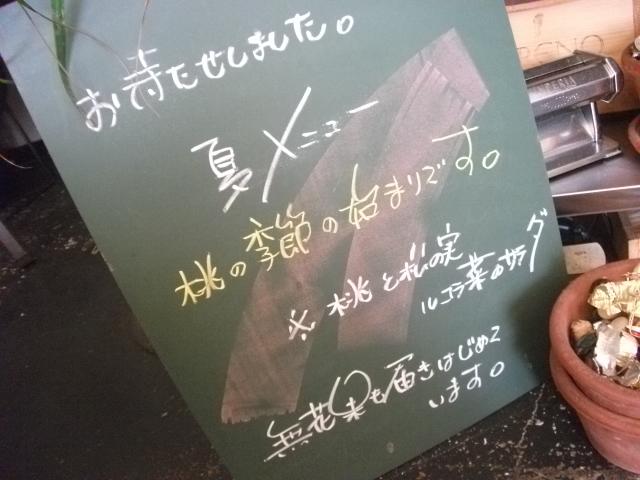 お待たせしました。
夏メニュー
桃の季節の始まりです。
※ 桃と松の実
ルコラ菜のサラダ
無花果も届きはじめて
います。